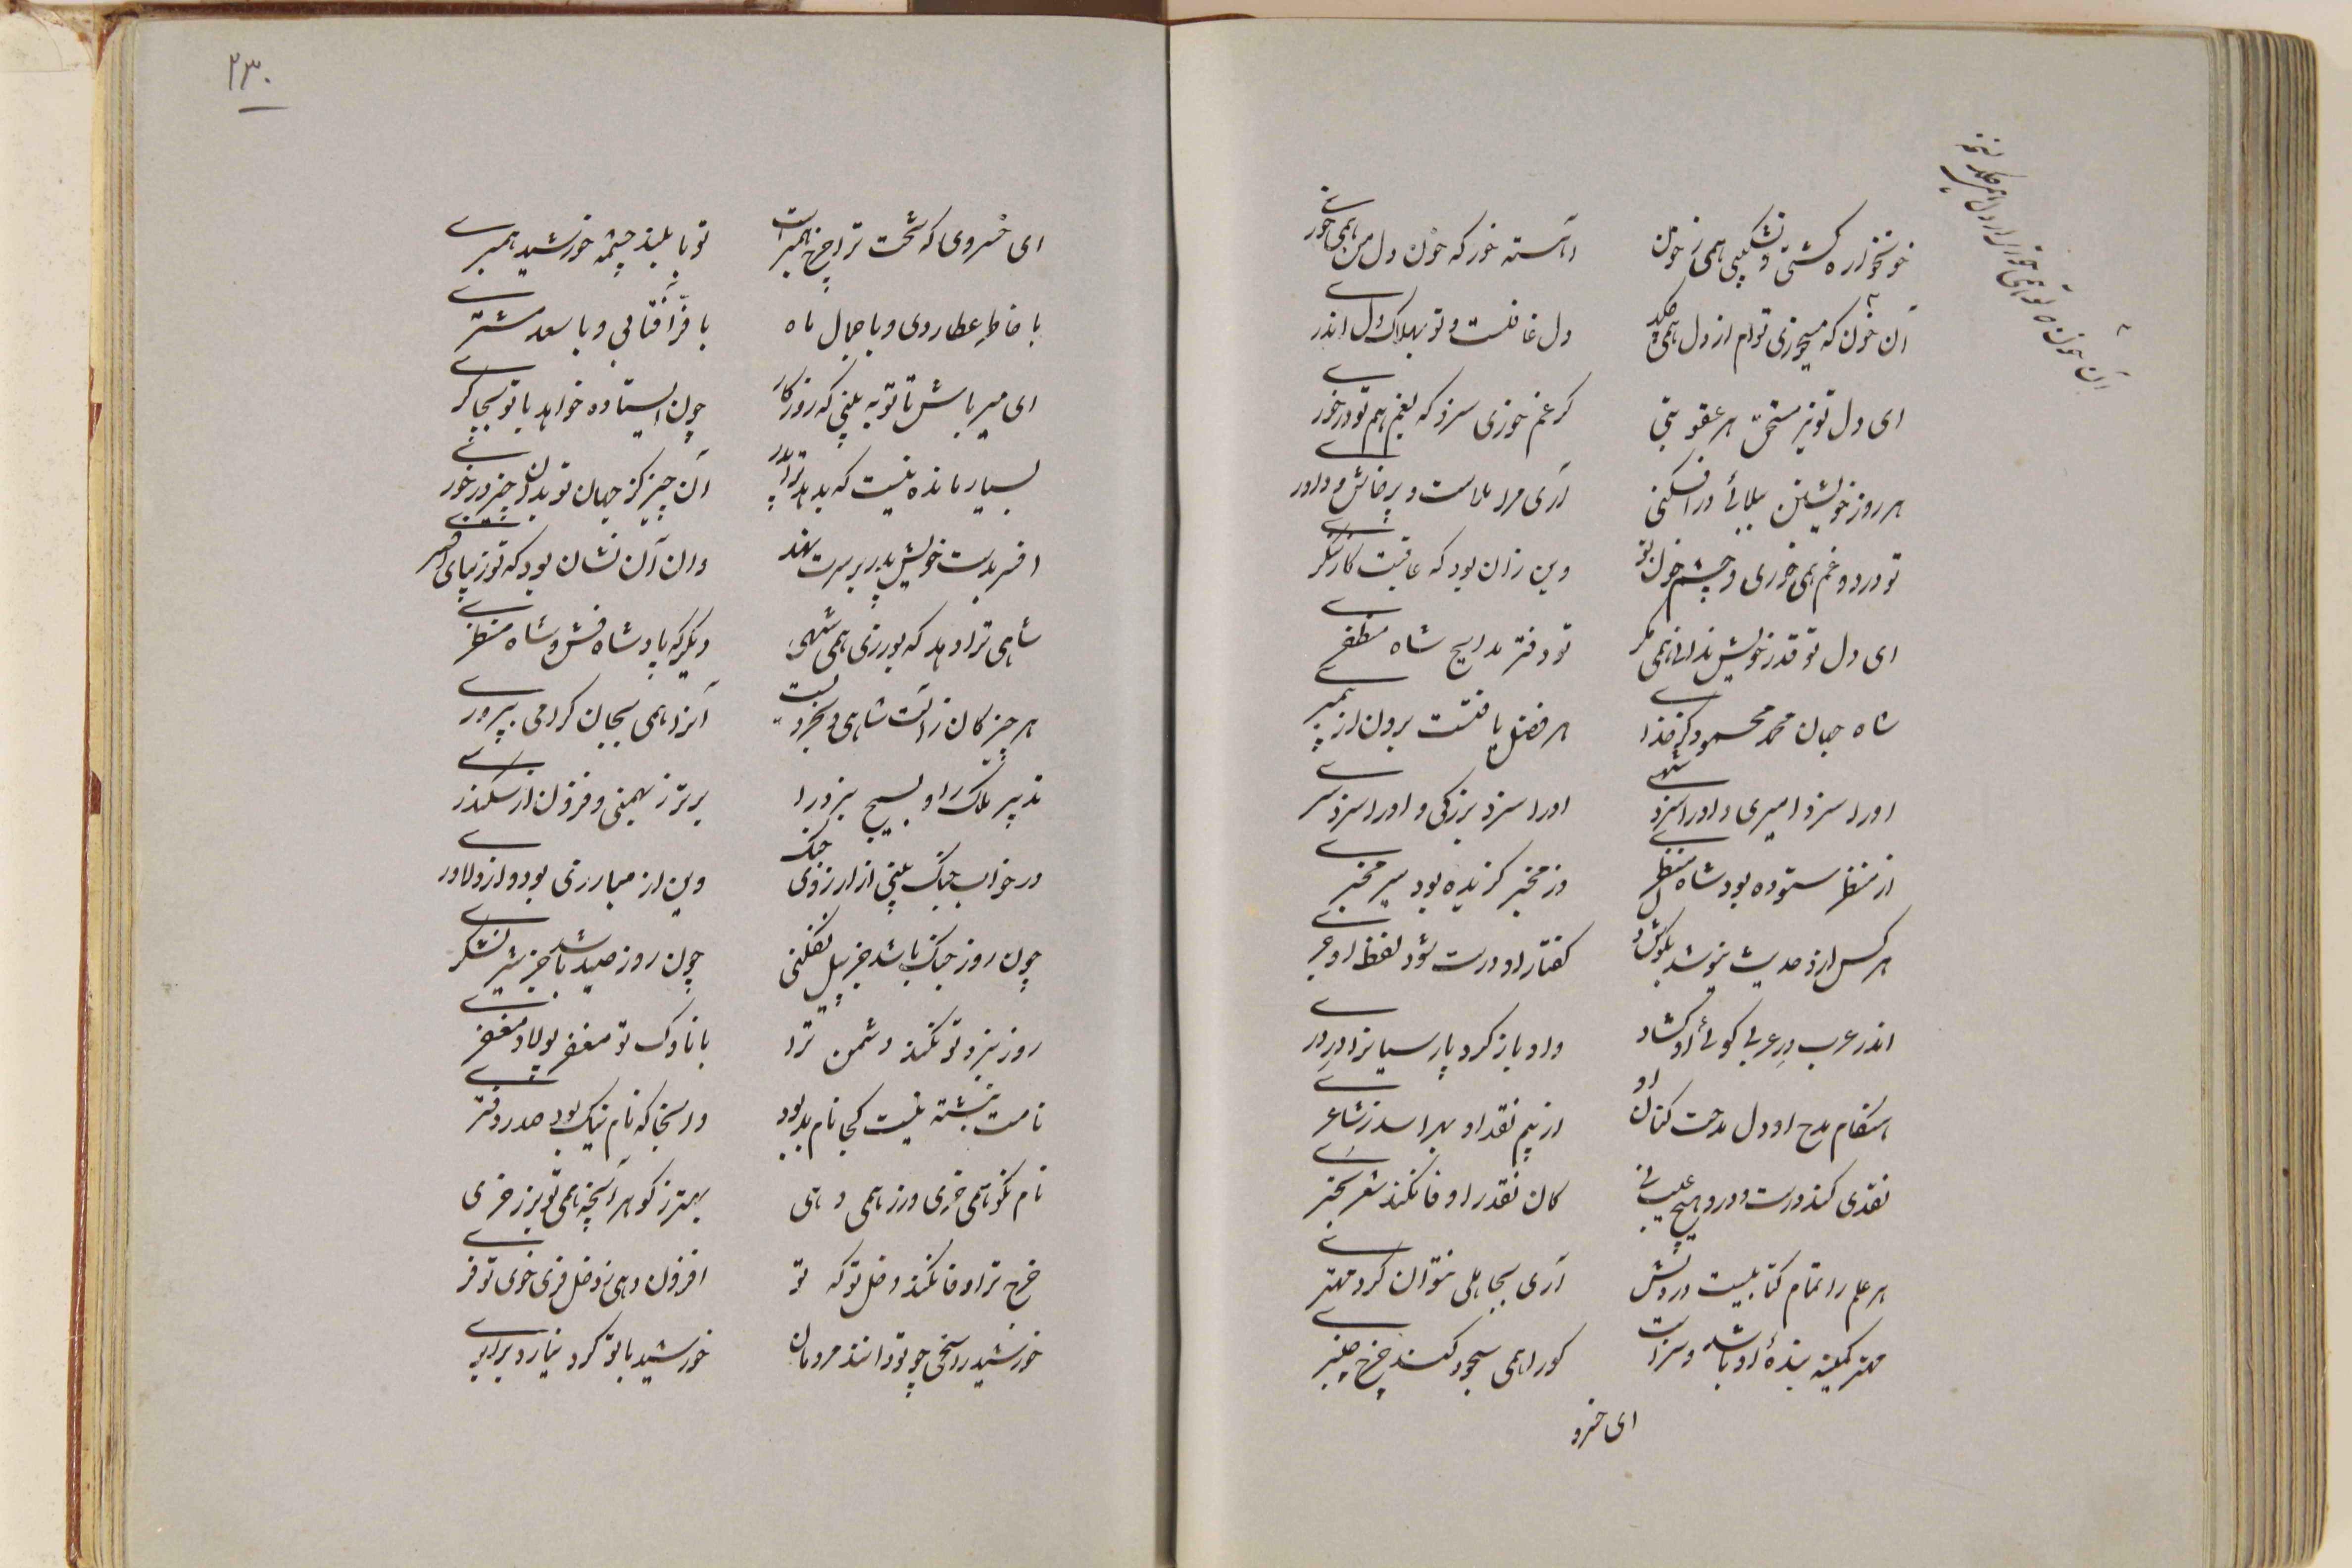 خونخواره گشتی و نشکیبی همی ز خون
آهسته خور که خون دل من همی خوری
آن خون که میخوری تو از دل همی چکد
دل غافلست و تو بهلاک دل اندری
ای دل تو نیز مستحق هر عقوبتی
گر غم خوری سزد که بغم هم تو درخوری
هر روز خویشتن ببلائی در افکنی
آری مرا ملامت و پرخاش و داوری
تو درد و غم همی خوری و چشم خون تو
وین زان بود که عاقبت کار ننگری
ای دل تو قدر خویش ندانی همی مگر
تو دفتر مدایح شاه مظفری
شاه جهان محمد محمود کز خدا
هر فضل یافتست برون از پیمبری
او را سزد امیری و او را سزد شهی
او را سزد بزرگی و او را سزد سری
از منظر ستوده بود شاه منظری
وز مخبر گزیده بود میر مخبری
هر کس ازو حدیث نیوشد بگوش دل
گفتار او درست شود لفظ او جری
اندر عرب در عربی گوئی او گشاد
و او باز کرد پارسیانرا در دری
هنگام مدح او دل مدحت کنان او
از بیم نقد او بهراسد ز شاعری
نقدی کند درست و درو هیچ عیب نی
کان نقد را وفا نکند شعر بحتری
هر علم را تمام کتابیست در دلش
آری بجاهلی نتوان کرد مهتری
مهتر کمینه بنده او باشد و سزاست
کو را همی سجود کند چرخ چنبری
ای خسرو
۲۳۰
ای خسروی که تخت ترا چرخ همبر است
تو با بلند چشمه خورشید همبری
با خاطر عطاردی و با جمال ماه
با فر آفتابی و با سعد مشتری
ای میر باش تا تو به بینی که روزگار
چون ایستاده خواهد با تو بچاکری
بسیار مانده نیست که بدهد ترا پدر
آن چیز کز جهان تو بدان چیز درخوری
افسر بدست خویش پدر بر سرت نهد
وان آن نشان بود که تو زیبای افسری
شاهی ترا دهد که بورزی همی شهی
دیگر که پادشاه فش و شاه منظری
هر چیز کان ز آلت شاهی و خسرویست
آنرا همی بجان گرامی بپروری
تدبیر ملک را و بسیج نبرد را
برتر ز بهمنی و فزون از سکندری
در خواب جنگ بینی از آرزوی جنگ
وین از مبارزی بود و از دلاوری
چون روز جنگ باشد جز پیل نفکنی
چون روز صید باشد جز شیر نشکری
روز نبرد تو نکند دشمن ترا
با ناوک تو مغفر پولاد مغفری
نامت نبشته نیست کجا نام بد بود
وانجا که نام نیک بود صدر دفتری
نام نکو همی خری و زر همی دهی
بهتر ز گوهر آنچه همی تو بزر خری
خرج ترا وفا نکند دخل تو که تو
افزون دهی ز دخل فری خوی تو فری
خورشید را سخی چو تو دانند مردمان
خورشید با تو کرد نیارد برابری